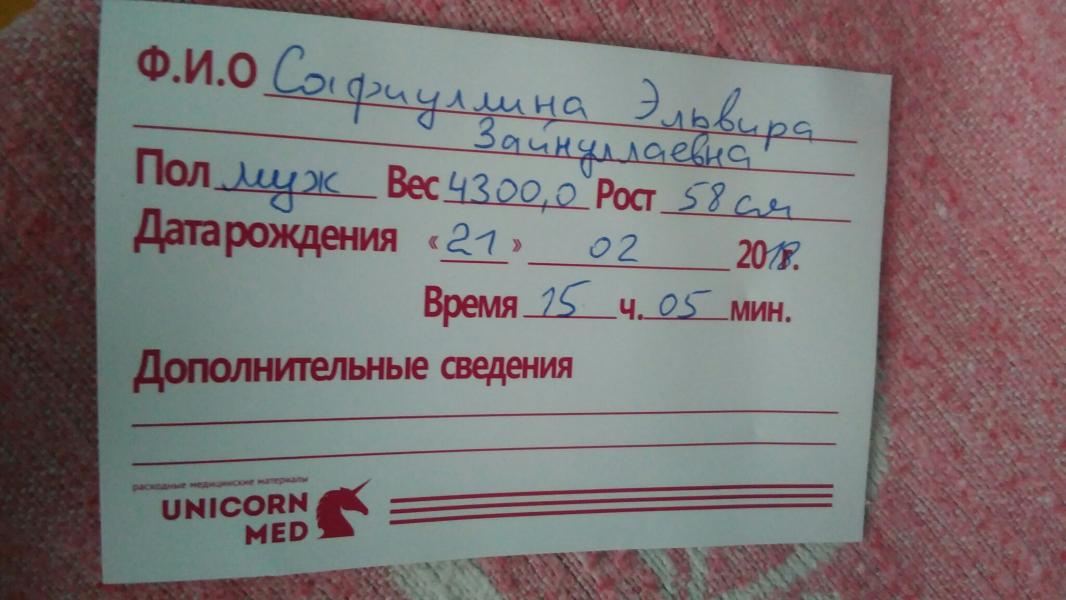 Ф.И.О Сафиуллина Эльвира
Зайнуллаевна
Пол муж Вес 4300,0 Рост 58 см
Дата рождения «21» 02 2018г.
Время 15 ч. 05 мин.
Дополнительные сведения
расходные медицинские материалы
UNICORN
MED